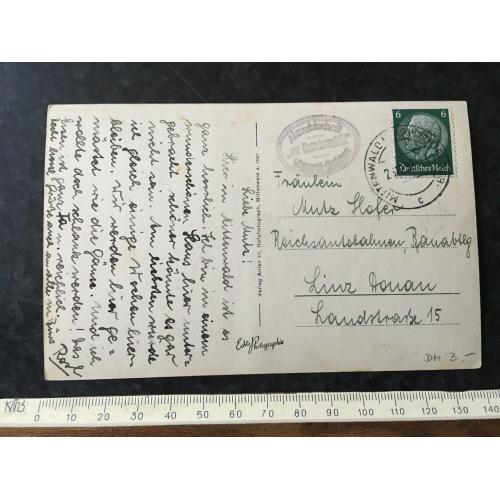 Liebe Mutz!
Hier in Mittenwald ist es
ganz herrlich. Ich bin in einem
wunderschönen Haus hier unter-
gebracht, schöner könnte es gar
nicht sein. Am liebsten würde
ich gleich einige Wochen hier
bleiben. Wir werden hier ge-
mästet wie die Gänse. Und ich
wollte doch schlank werden! Das
Essen ist ganz
6
6
Deutsches Reich
MITTENWALD
Fräulein
Mutz Hofer
Reichsautobahnen, Bauabtlg
Linz Donau
Landstraße 15
Verlag Anton Irl, Hofphotograph, Mittenwald a. Isar
Echte Photographie
DM 3.-
0 10 20 30 40 50 60 70 80 90 100 110 120 130 140